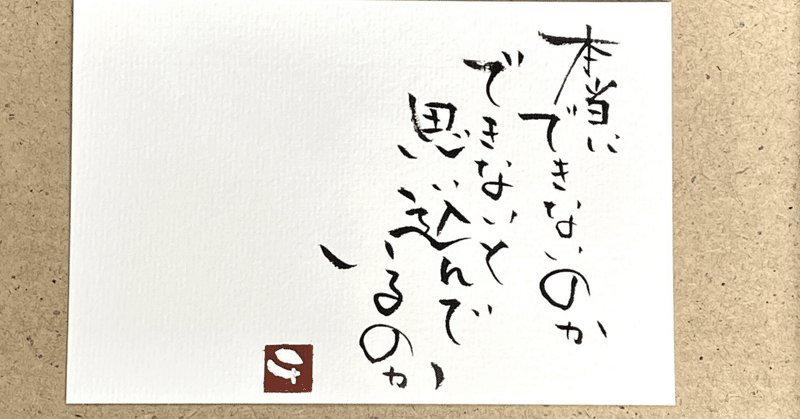 本当に
できないのか
できないと
思い込んで
いるのか